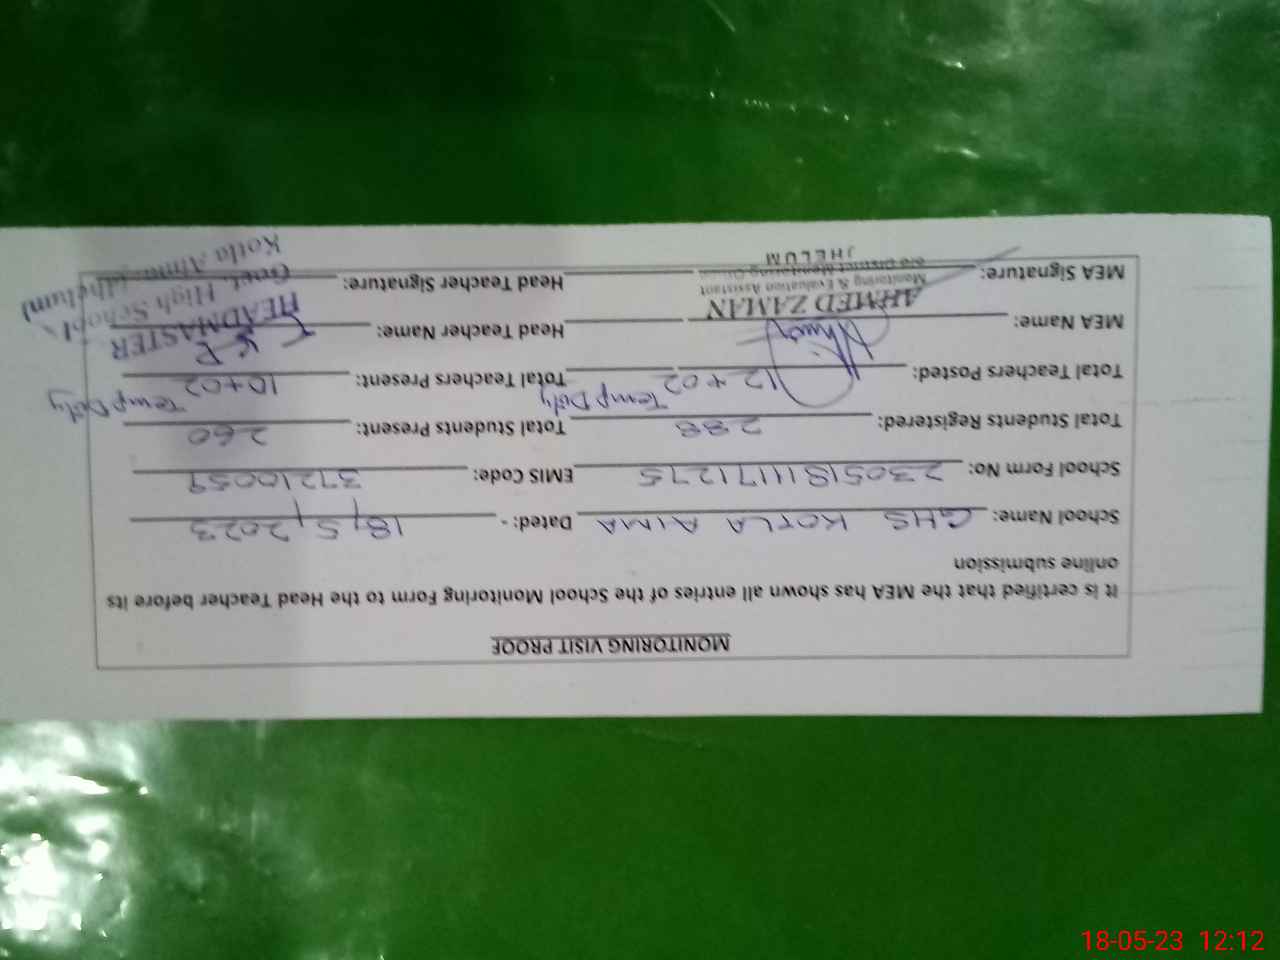 MONITORING VISIT PROOF
It is certified that the MEA has shown all entries of the School Monitoring Form to the Head Teacher before its
online submission
School Name: GHS KOTLA AIMA Dated: - 18/5/2023
School Form No: 230518111171275 EMIS Code: 37210059
Total Students Registered: 288 Total Students Present: 260
Total Teachers Posted: 12+02 Temp Dity Total Teachers Present: 10+02 Temp Dity
MEA Name: Head Teacher Name:
AHMED ZAMAN HEADMASTER
Monitoring & Evaluation Assistant Govt. High School
MEA Signature: Head Teacher Signature:
o/o District Monitoring Officer Kotla Aima (Jhelum)
JHELUM
18-05-23 12:12